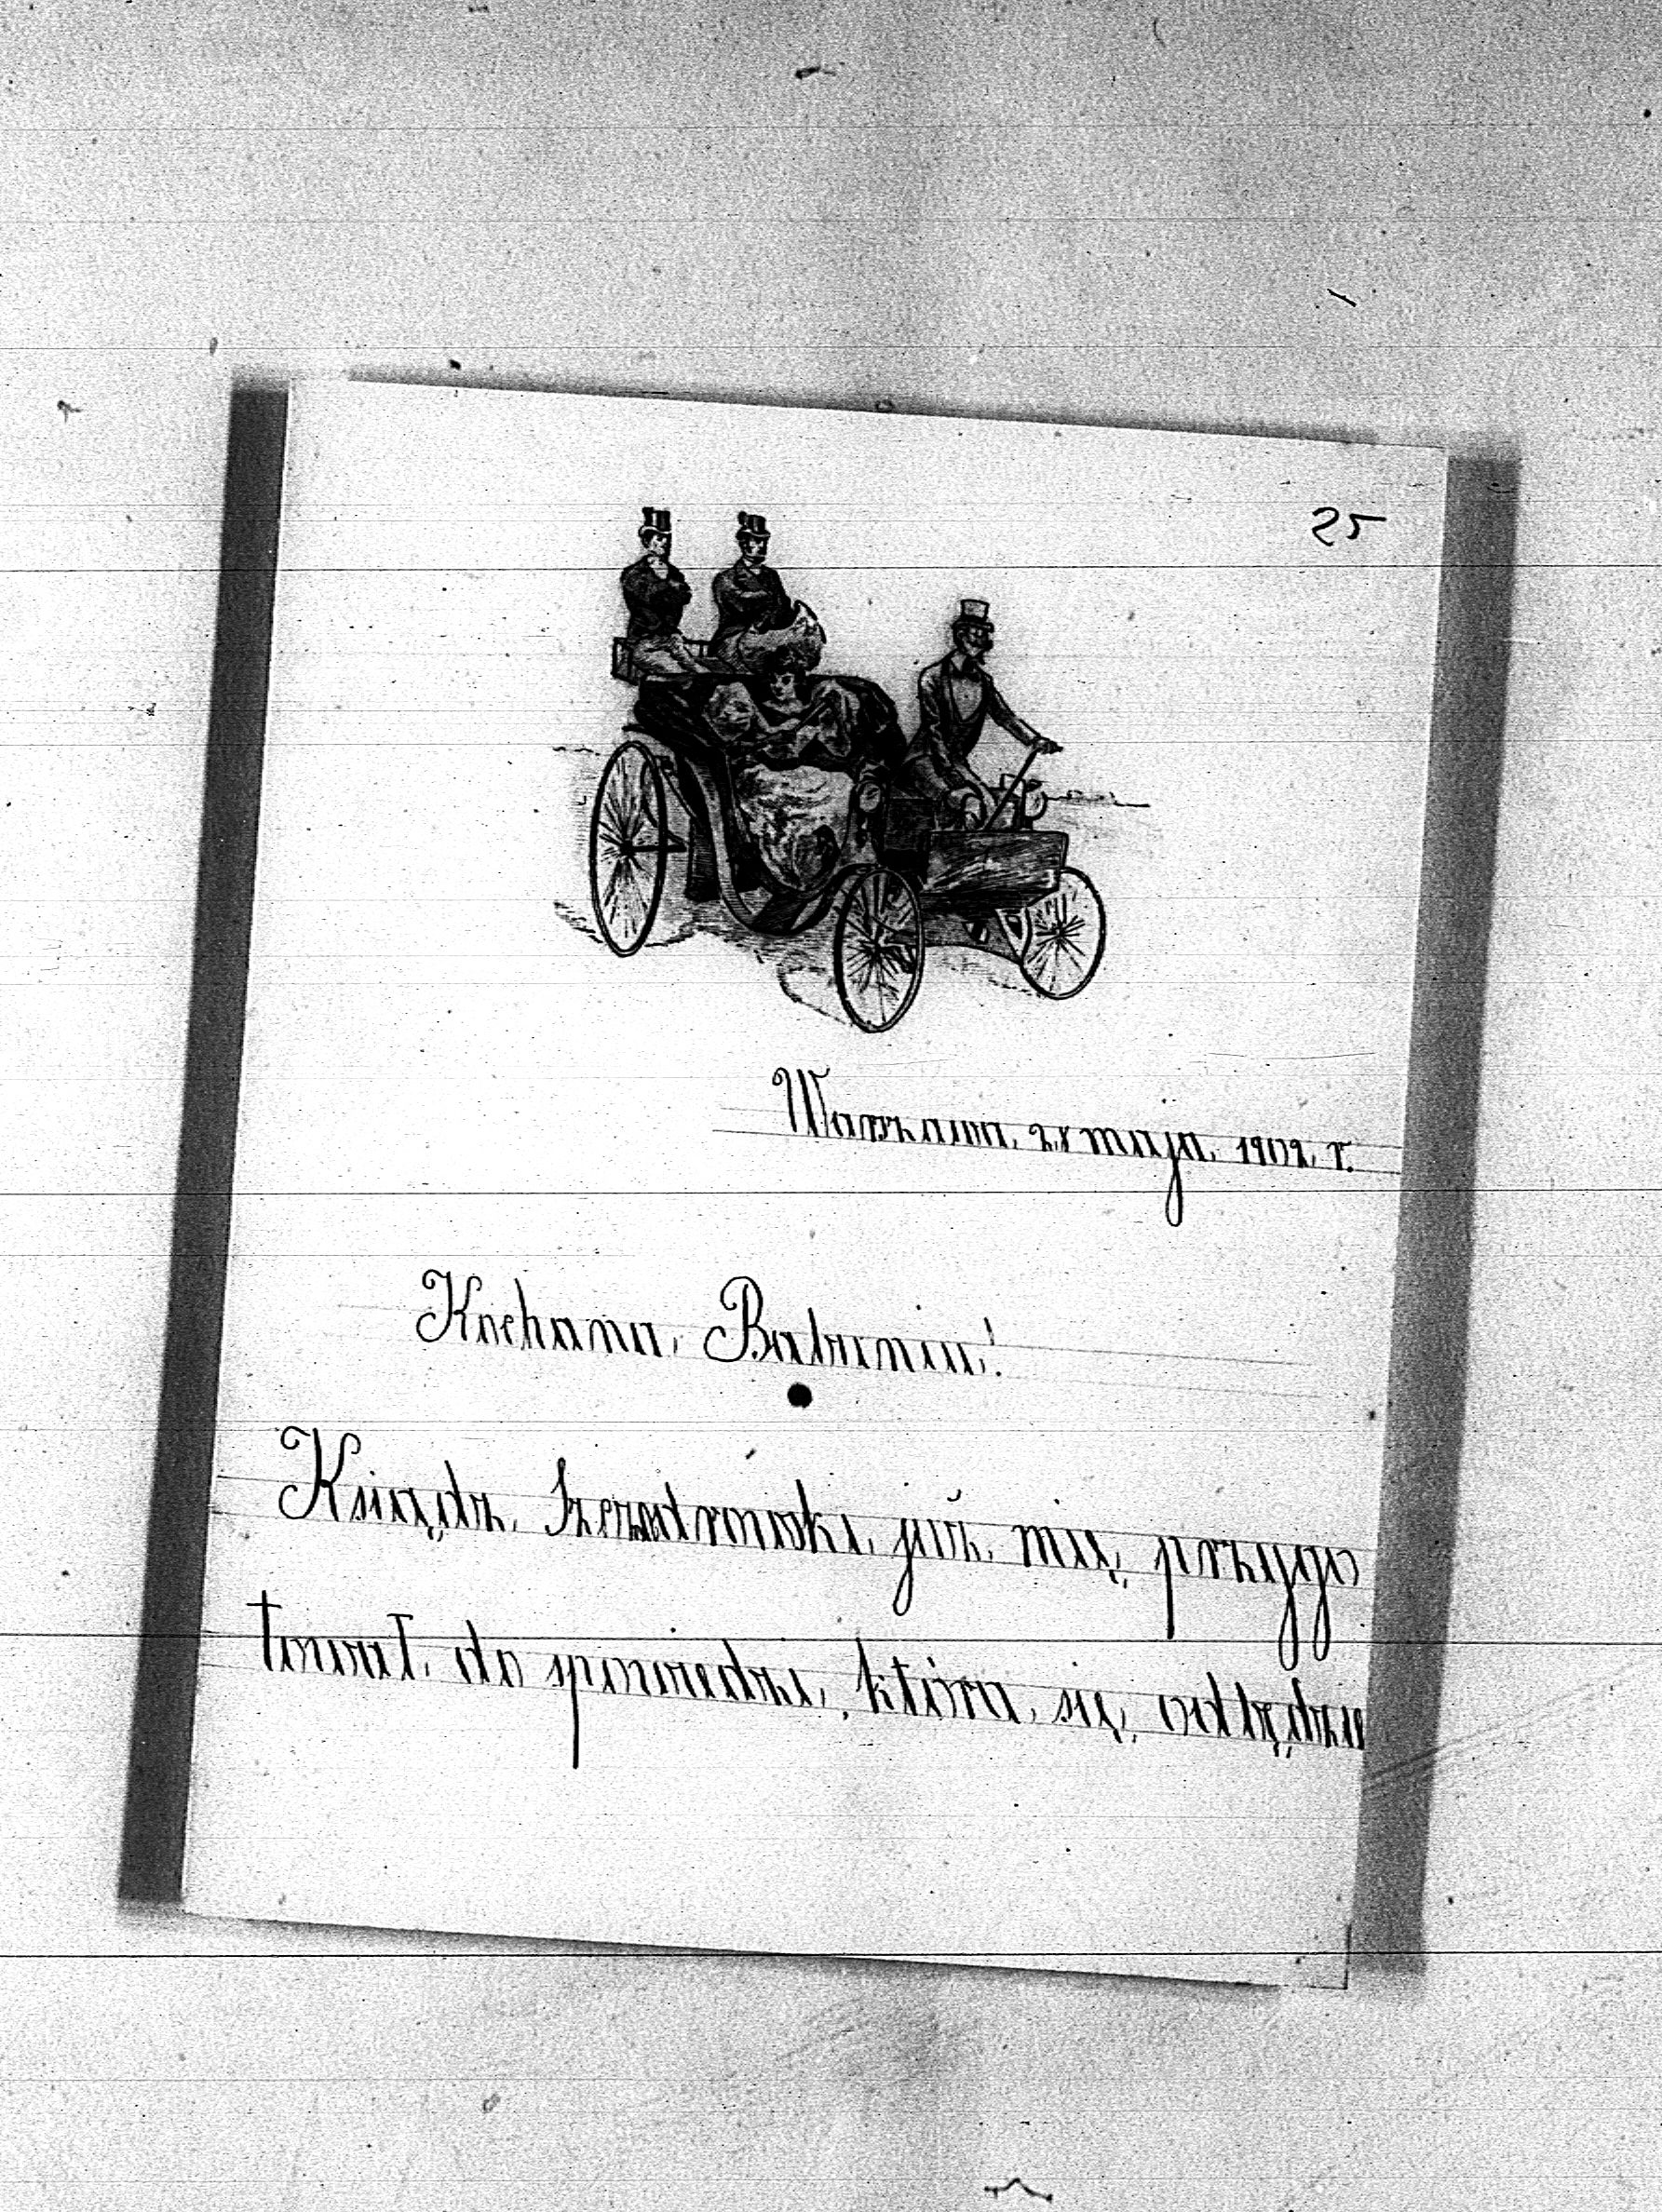 25
Warszawa, 28 maja, 1902, r.
Kochana, Babuniu!
Ksiądz, już, mię, przygo
tował, do spowiedzi, która, się, odbędzie